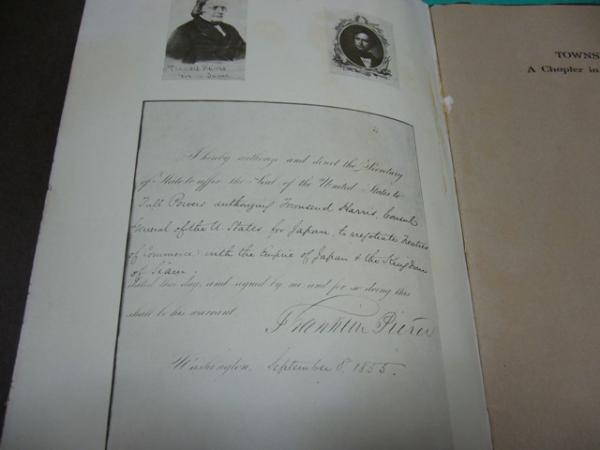 Townsend Harris
TOWNS
A Chapter in
I hereby authorize and direct the Secretary
of State to affix the Seal of the United States to
Full Powers authorizing Townsend Harris, Consul
General of the U. States for Japan, to negotiate Treaties
of Commerce with the Empire of Japan & the Kingdom
of Siam
dated this day, and signed by me and for so doing this
shall be his warrant.
Franklin Pierce
Washington, September 8, 1855.